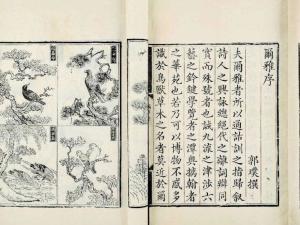 爾雅序
郭璞撰
夫爾雅者所以通詁訓之指歸敘
詩人之興詠總絕代之離詞辯同
實而殊號者也誠九流之津涉六
藝之鈐鍵學覽者之潭奧摛翰者
之華苑也若乃可以博物不惑多
識於鳥獸草木之名者莫近於爾